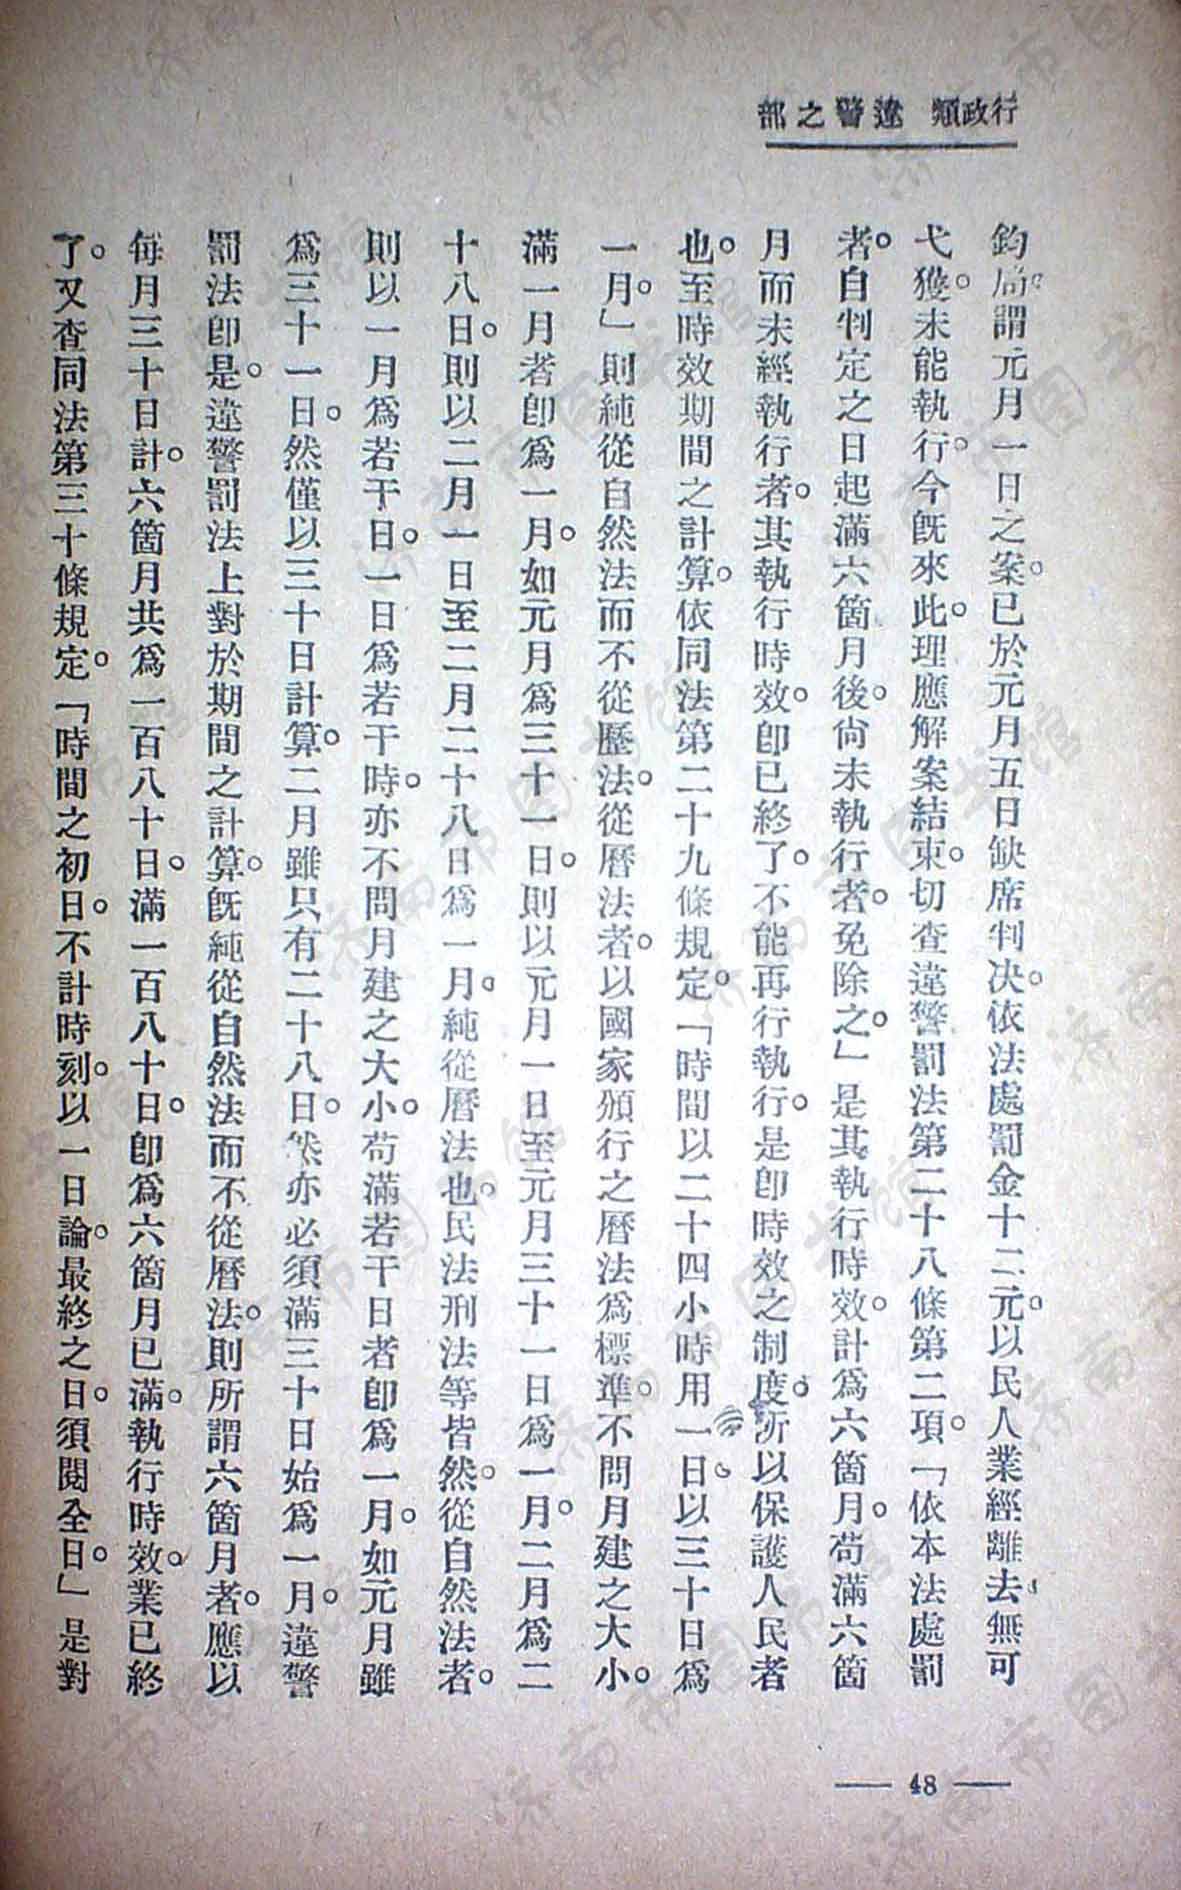 行政類 違警之部
鈞局。謂元月一日之案。已於元月五日缺席判决。依法處罰金十二元。以民人業經離去。無可
弋獲。未能執行。今旣來此。理應解案結束。切查違警罰法第二十八條第二項。「依本法處罰
者。自判定之日起滿六箇月後。尙未執行者。免除之。」是其執行時效。計爲六箇月。苟滿六箇
月而未經執行者。其執行時效。卽已終了。不能再行執行。是卽時效之制度。所以保護人民者
也。至時效期間之計算。依同法第二十九條規定。「時間以二十四小時用一日。以三十日爲
一月。」則純從自然法而不從歷法。從曆法者。以國家頒行之曆法爲標準。不問月建之大小。
滿一月者卽爲一月。如元月爲三十一日。則以元月一日至元月三十一日爲一月。二月爲二
十八日。則以二月一日至二月二十八日爲一月。純從曆法也。民法刑法等皆然。從自然法者。
則以一月爲若干日。一日爲若干時。亦不問月建之大小。苟滿若干日者卽爲一月。如元月雖
爲三十一日。然僅以三十日計算。二月雖只有二十八日。然亦必須滿三十日始爲一月。違警
罰法卽是。違警罰法上對於期間之計算。旣純從自然法而不從曆法。則所謂六箇月者。應以
每月三十日計。六箇月共爲一百八十日。滿一百八十日。卽爲六箇月已滿。執行時效。業已終
了。又查同法第三十條規定。「時間之初日。不計時刻。以一日論。最終之日。須閱全日。」是對
— 48 —
济南市图书馆